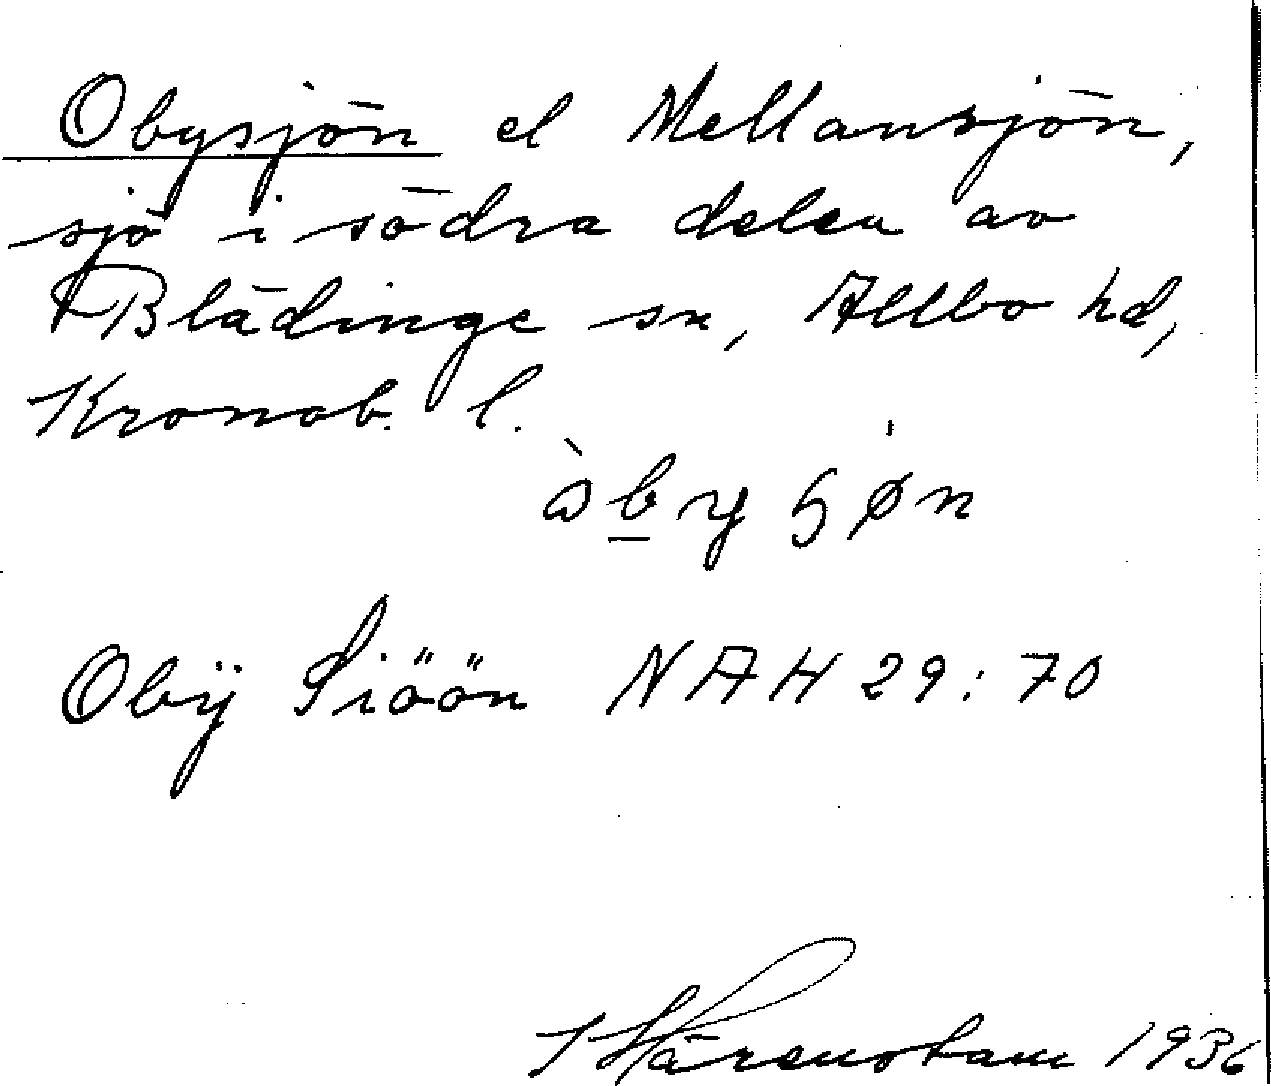 Obysjön el Mellansjön,
sjö i södra delen av
Blädinge sn, Allbo hd,
Kronob. l.
Obÿ Siöön NAH 29:70
Härenstam 1936